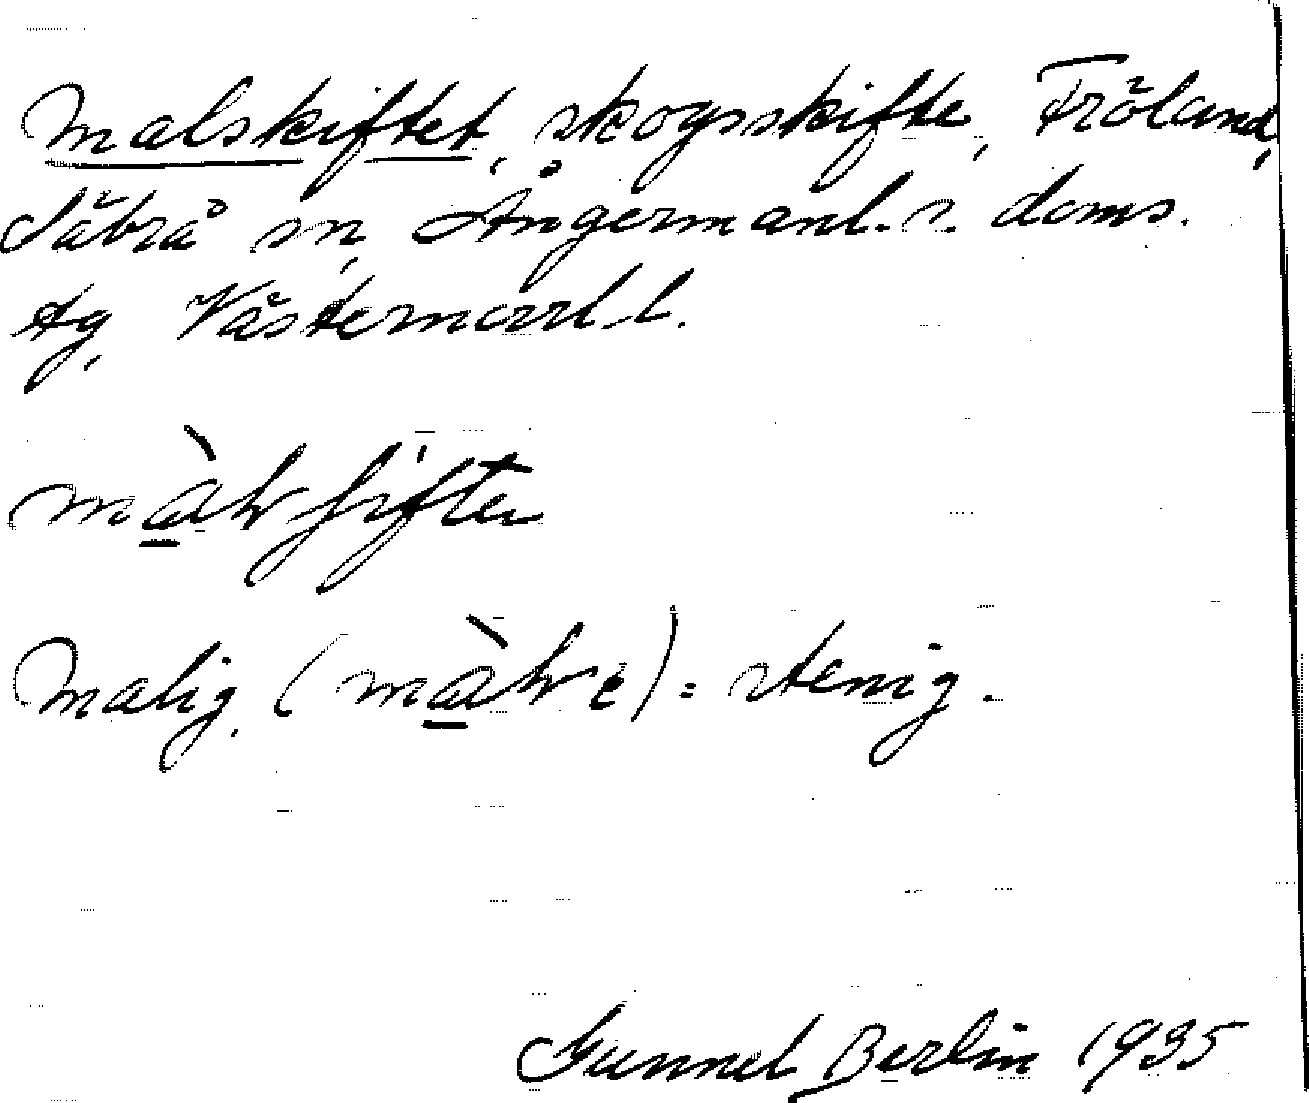 Malskiftet, skogsskifte, Fröland,
Säbrå sn, Ångermanl. s. doms.
tg, Västernorrl. l.
Malig, ( ) = stenig.
Gunnel Berlin 1935